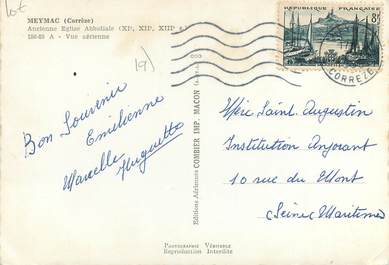 Lot
MEYMAC (Corrèze)
Ancienne Eglise Abbatiale (XIe, XIIe, XIIIe s.)
A - Vue aérienne
19)
REPUBLIQUE FRANÇAISE
8F
CORREZE
Bon Souvenir
Emilienne
Marcelle
Huguette
Editions Aériennes COMBIER IMP. MACON
Mère Saint Augustin
Institution
10 rue du Mont
(Seine Maritime)
PHOTOGRAPHIE VÉRITABLE
Reproduction Interdite